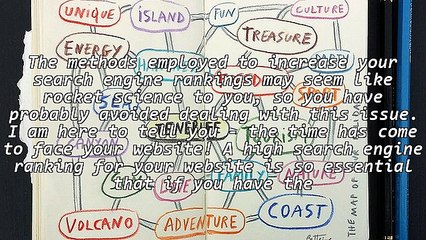 UNIQUE
ISLAND
FUN
CULTURE
TREASURE
ENERGY
The methods employed to increase your
search engine rankings may seem like
rocket science to you, so you have
probably avoided dealing with this issue.
I am here to tell you - the time has come
to face your website! A high search engine
ranking for your website is so essential
that if you have the
TENERIFE
SPORT
SEA
FAMILY
NATURE
VOLCANO
ADVENTURE
COAST
THE MAP OF